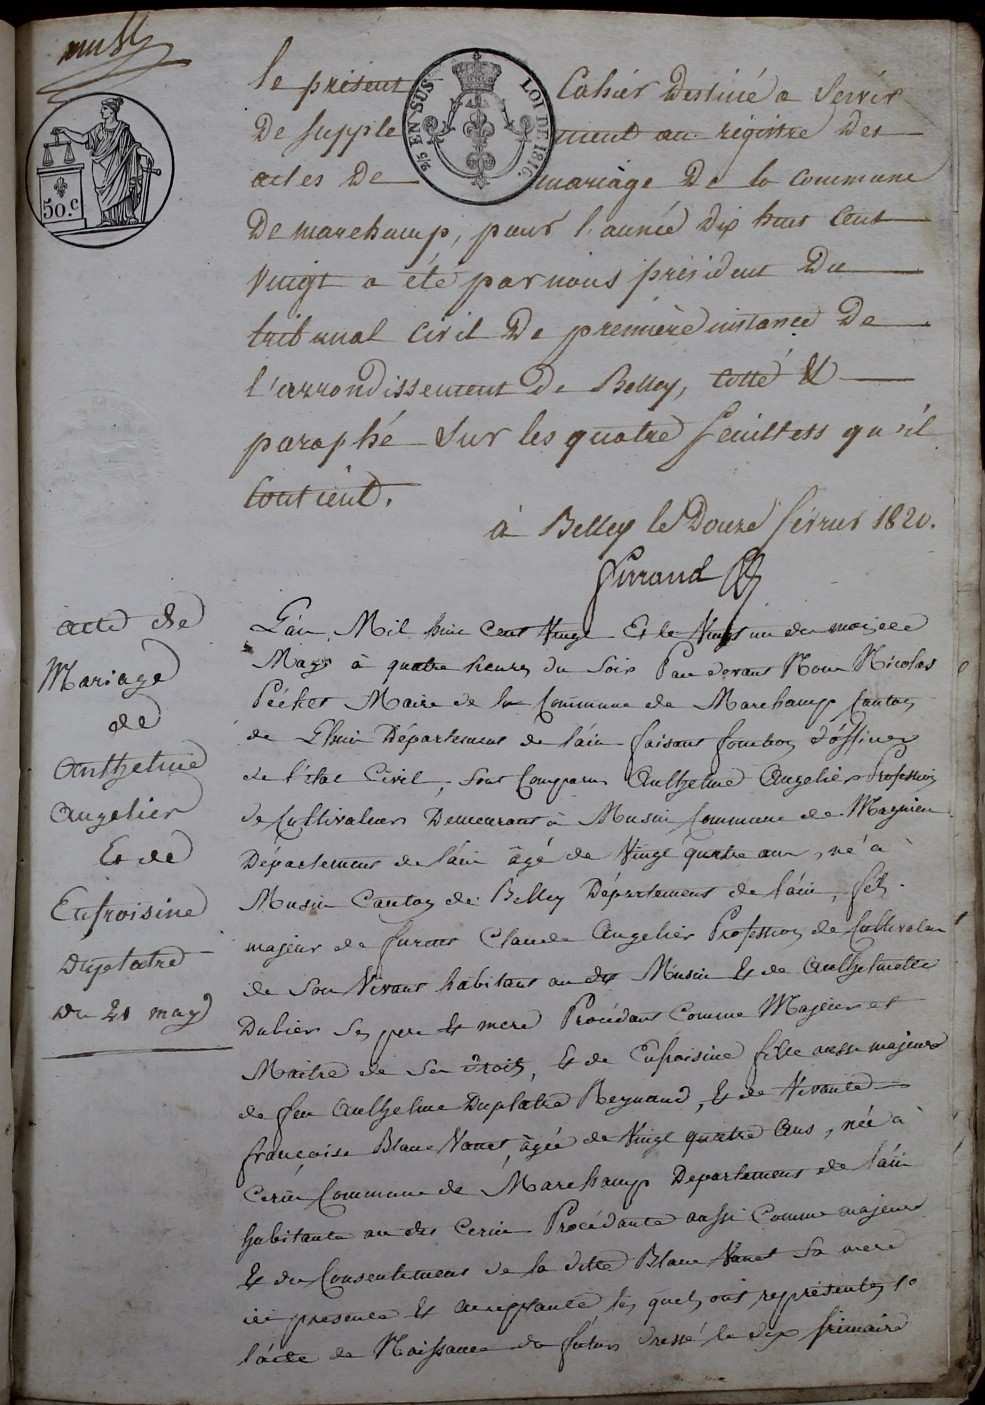 50.c
2/5 EN SUS LOI DE 1816.
le présent Cahier Destiné a Servir
De Supplement au régistre Des
actes De mariage De la Commune
De marchamp, pour l'année Dix huit Cent
Vingt a été par nous président Du
tribunal Civil De première instance De
l'arrondissement De Belley, Cotté &
paraphé Sur les quatre feuillets qu'il
Contient.
à Belley le Douze février 1820.
acte de
Mariage
de
Anthelme
Angelier
Et de
Eufroisine
Duplatre
Du 21 may
L'an Mil huit Cent Vingt Et le Vingt un du mois de
May à quatre heures du Soir Par devant Nous Nicolas
Maire de la Commune de Marchamp Canton
de Lhuis Département de l'ain faisant fonction d'officier
de l'état Civil, Sont Comparus Anthelme Angelier Profession
de Cultivateur Demeurant à Musin Commune de Magnieu
Département de l'ain âgé de Vingt quatre ans, né à
Musin Canton de Belley Département de l'ain, fils
majeur de Claude Angelier Profession de Cultivateur
de Son Vivant habitant au dit Musin Et de Anthelmette
Dubier Ses pere Et mere Procédant Comme Majeur et
Maitre de Ses Droits, Et de Eufroisine fille aussi majeure
de feu Anthelme Duplatre Reynaud, Et de Vivante
françoise Blanc Vanet, âgée de Vingt quatre Ans, née à
Cerin Commune de Marchamp Département de l'ain
habitante au dit Cerin Procédante aussi Comme majeure
Et du Consentement de la ditte Blanc Vanet Sa mere
ici presente Et acceptante les quels ont représentés 1o
l'acte de Naissance du futur Dressé le dix frimaire